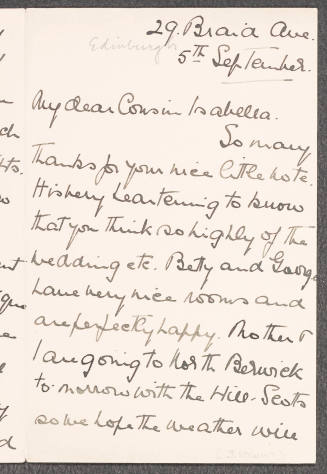 29. Braid Ave.
Edinburgh
5th September.
My dear Cousin Isabella.
So many
thanks for your nice little note.
It is very heartening to know
that you think so highly of the
wedding etc. Bety and George
have very nice rooms and
are perfectly happy. Mother &
I are going to North Berwick
to-morrow with the Hill-Scotts
so we hope the weather will